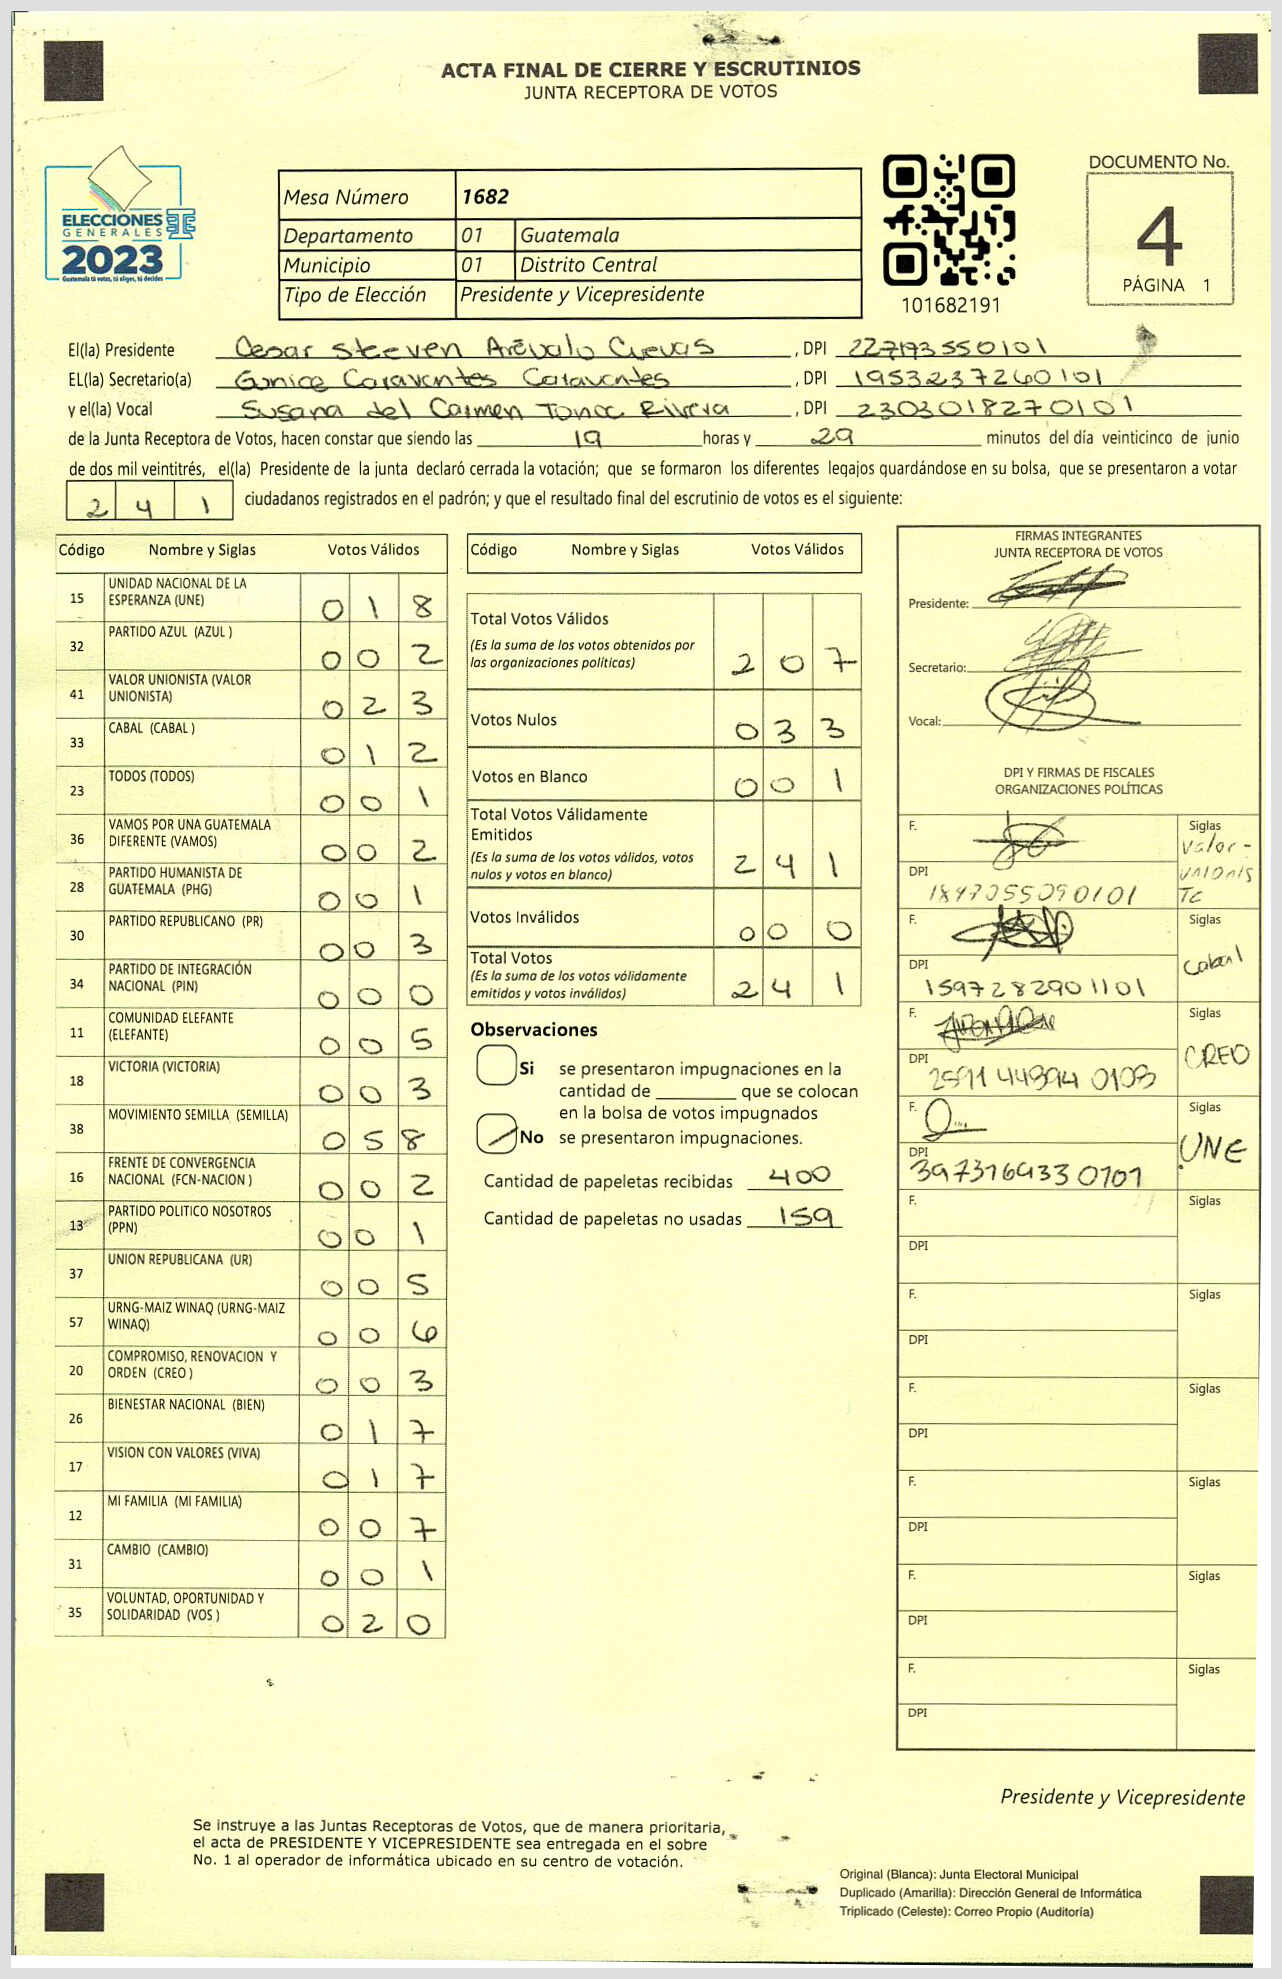 ACTA FINAL DE CIERRE Y ESCRUTINIOS
JUNTA RECEPTORA DE VOTOS
ELECCIONES
GENERALES
2023
Guatemala tú votas, tú eliges, tú decides
Mesa Número 1682
Departamento 01 Guatemala
Municipio 01 Distrito Central
Tipo de Elección Presidente y Vicepresidente
101682191
DOCUMENTO No.
4
PÁGINA 1
El(la) Presidente Cesar Steeven Arévalo Cuevas, DPI
EL(la) Secretario(a) Eunice Caravantes Caravantes, DPI 1953237260101
y el(la) Vocal Susana del Carmen Rivera, DPI 2303018270101
de la Junta Receptora de Votos, hacen constar que siendo las 19 horas y 29 minutos del día veinticinco de junio
de dos mil veintitrés, el(la) Presidente de la junta declaró cerrada la votación; que se formaron los diferentes legajos quardándose en su bolsa, que se presentaron a votar
241 ciudadanos registrados en el padrón; y que el resultado final del escrutinio de votos es el siguiente:
Código Nombre y Siglas Votos Válidos
15 UNIDAD NACIONAL DE LA
ESPERANZA (UNE) 018
32 PARTIDO AZUL (AZUL ) 002
41 VALOR UNIONISTA (VALOR
UNIONISTA) 023
33 CABAL (CABAL ) 012
23 TODOS (TODOS) 001
36 VAMOS POR UNA GUATEMALA
DIFERENTE (VAMOS) 002
28 PARTIDO HUMANISTA DE
GUATEMALA (PHG) 001
30 PARTIDO REPUBLICANO (PR) 003
34 PARTIDO DE INTEGRACIÓN
NACIONAL (PIN) 000
11 COMUNIDAD ELEFANTE
(ELEFANTE) 005
18 VICTORIA (VICTORIA) 003
38 MOVIMIENTO SEMILLA (SEMILLA) 058
16 FRENTE DE CONVERGENCIA
NACIONAL (FCN-NACION ) 002
13 PARTIDO POLITICO NOSOTROS
(PPN) 001
37 UNION REPUBLICANA (UR) 005
57 URNG-MAIZ WINAQ (URNG-MAIZ
WINAQ) 006
20 COMPROMISO, RENOVACION Y
ORDEN (CREO ) 003
26 BIENESTAR NACIONAL (BIEN) 017
17 VISION CON VALORES (VIVA) 017
12 MI FAMILIA (MI FAMILIA) 007
31 CAMBIO (CAMBIO) 001
35 VOLUNTAD, OPORTUNIDAD Y
SOLIDARIDAD (VOS ) 020
Código Nombre y Siglas Votos Válidos
Total Votos Válidos
(Es la suma de los votos obtenidos por
las organizaciones políticas) 207
Votos Nulos 033
Votos en Blanco 001
Total Votos Válidamente
Emitidos
(Es la suma de los votos válidos, votos
nulos y votos en blanco) 241
Votos Inválidos 000
Total Votos
(Es la suma de los votos válidamente
emitidos y votos inválidos) 241
Observaciones
Si se presentaron impugnaciones en la
cantidad de ________ que se colocan
en la bolsa de votos impugnados
No se presentaron impugnaciones.
Cantidad de papeletas recibidas 400
Cantidad de papeletas no usadas 159
FIRMAS INTEGRANTES
JUNTA RECEPTORA DE VOTOS
Presidente:
Secretario:
Vocal:
DPI Y FIRMAS DE FISCALES
ORGANIZACIONES POLÍTICAS
F. Siglas
Valor-
DPI
1847055090101
F. Siglas
Cabal
DPI
1597282901101
F. Siglas
CREO
DPI
F. Siglas
UNE
DPI
F. Siglas
DPI
F. Siglas
DPI
F. Siglas
DPI
F. Siglas
DPI
F. Siglas
DPI
F. Siglas
DPI
Presidente y Vicepresidente
Se instruye a las Juntas Receptoras de Votos, que de manera prioritaria,
el acta de PRESIDENTE Y VICEPRESIDENTE sea entregada en el sobre
No. 1 al operador de informática ubicado en su centro de votación.
Original (Blanca): Junta Electoral Municipal
Duplicado (Amarilla): Dirección General de Informática
Triplicado (Celeste): Correo Propio (Auditoría)